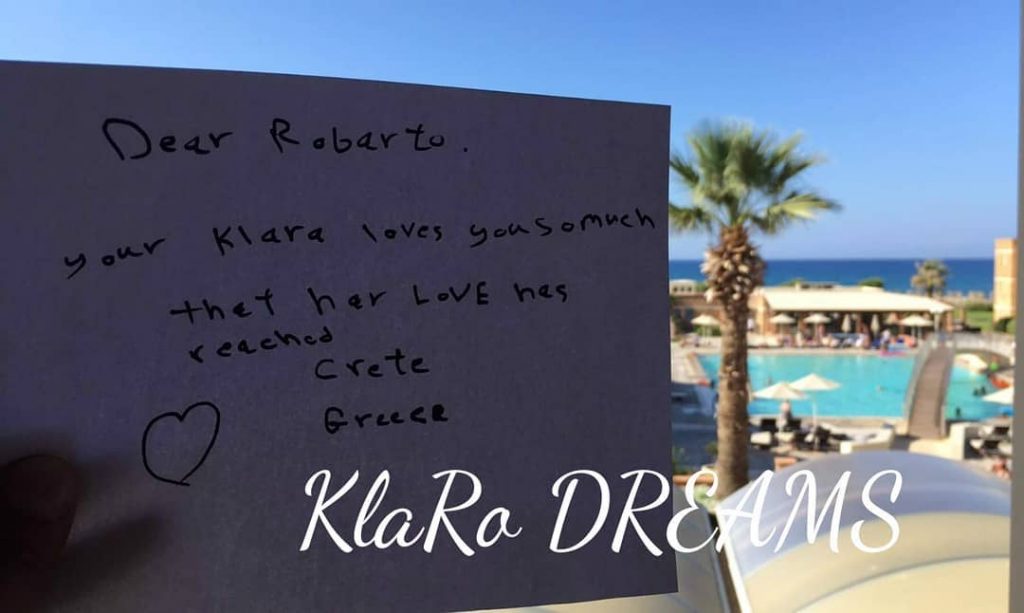 Dear Robarto.
your Klara loves you so much
that her LOVE has
reached
Crete
Greece
KlaRo DREAMS